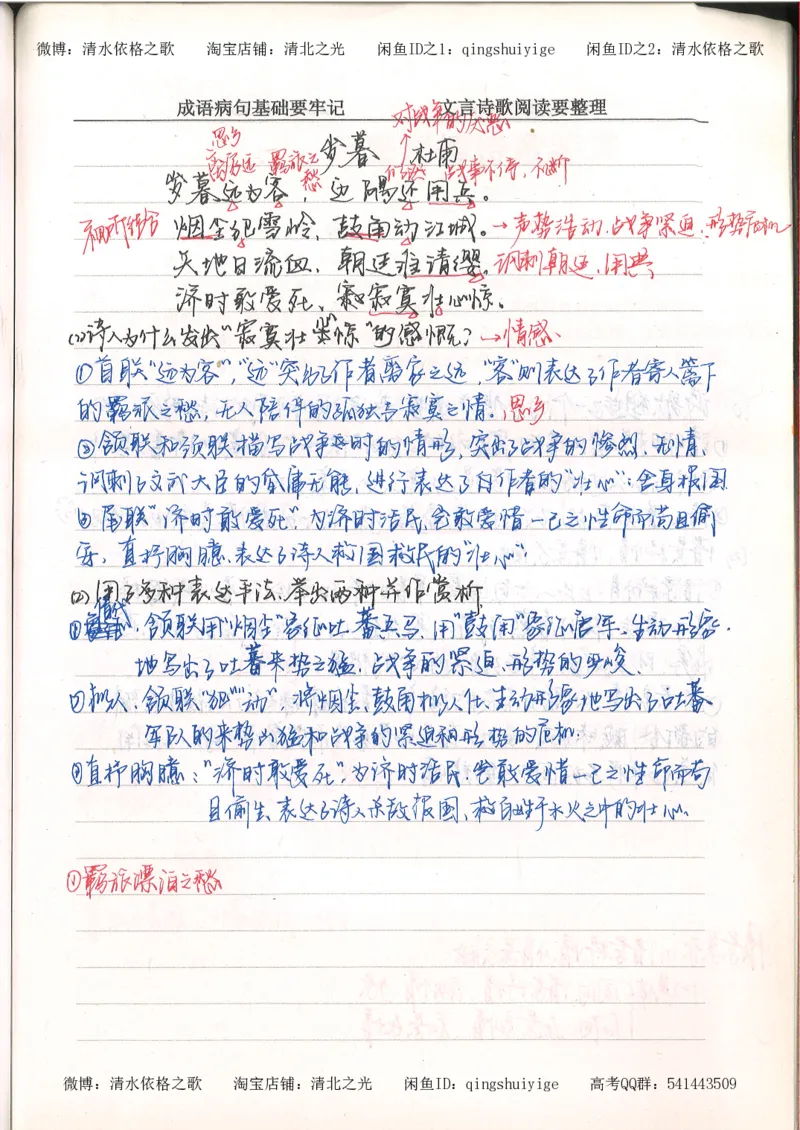 微博：清水依格之歌 淘宝店铺：清北之光 闲鱼ID之1：qingshuiyige 闲鱼ID之2：清水依格之歌
成语病句基础要牢记 文言诗歌阅读要整理
对战争的厌恶
思乡
岁暮 杜甫
离家远 羁旅之愁 仍然 战事不停，不断
岁暮远为客，边隅还用兵。
烟尘犯雪岭，鼓角动江城。→声势浩动，战争紧迫，形势危机
天地日流血，朝廷谁请缨。讽刺朝廷，用典
济时敢爱死，寂寞壮心惊。
(1)诗人为什么发出"寂寞壮心惊"的感慨？→情感
①首联"远为客"，"远"突出了作者离家之远，"客"则表达了作者寄人篱下
的羁旅之愁，无人陪伴的孤独与寂寞之情。，思乡
②颔联和颈联描写战争要时的情形，突出了战争的惨烈、无情、
讽刺了文武大臣的昏庸无能，进行表达了自作者的"壮心"：舍身报国
③尾联"济时敢爱死"，为济时活民，岂敢爱惜一己之性命而苟且偷
安，直抒胸臆，表达了诗人救国救民的"壮心"：
(2)用了多种表达手法，举出两种并作赏析
①借代，颔联用"烟尘"象征吐蕃兵马，用"鼓角"象征唐军，生动形象
地写出了吐蕃来势之猛，战争的紧迫，形势的严峻。
②拟人，颔联"犯""动"，将烟尘，鼓角拟人化，生动形象地写出了吐蕃
军队的来势凶猛和战争的紧迫和形势的危机。
③直抒胸臆："济时敢爱死"，为济时活民，岂敢爱惜一己之性命而苟
且偷生，表达了诗人杀敌报国，救百姓于水火之中的壮心。
①羁旅漂泊之愁
微博：清水依格之歌 淘宝店铺：清北之光 闲鱼ID：qingshuiyige 高考QQ群：541443509